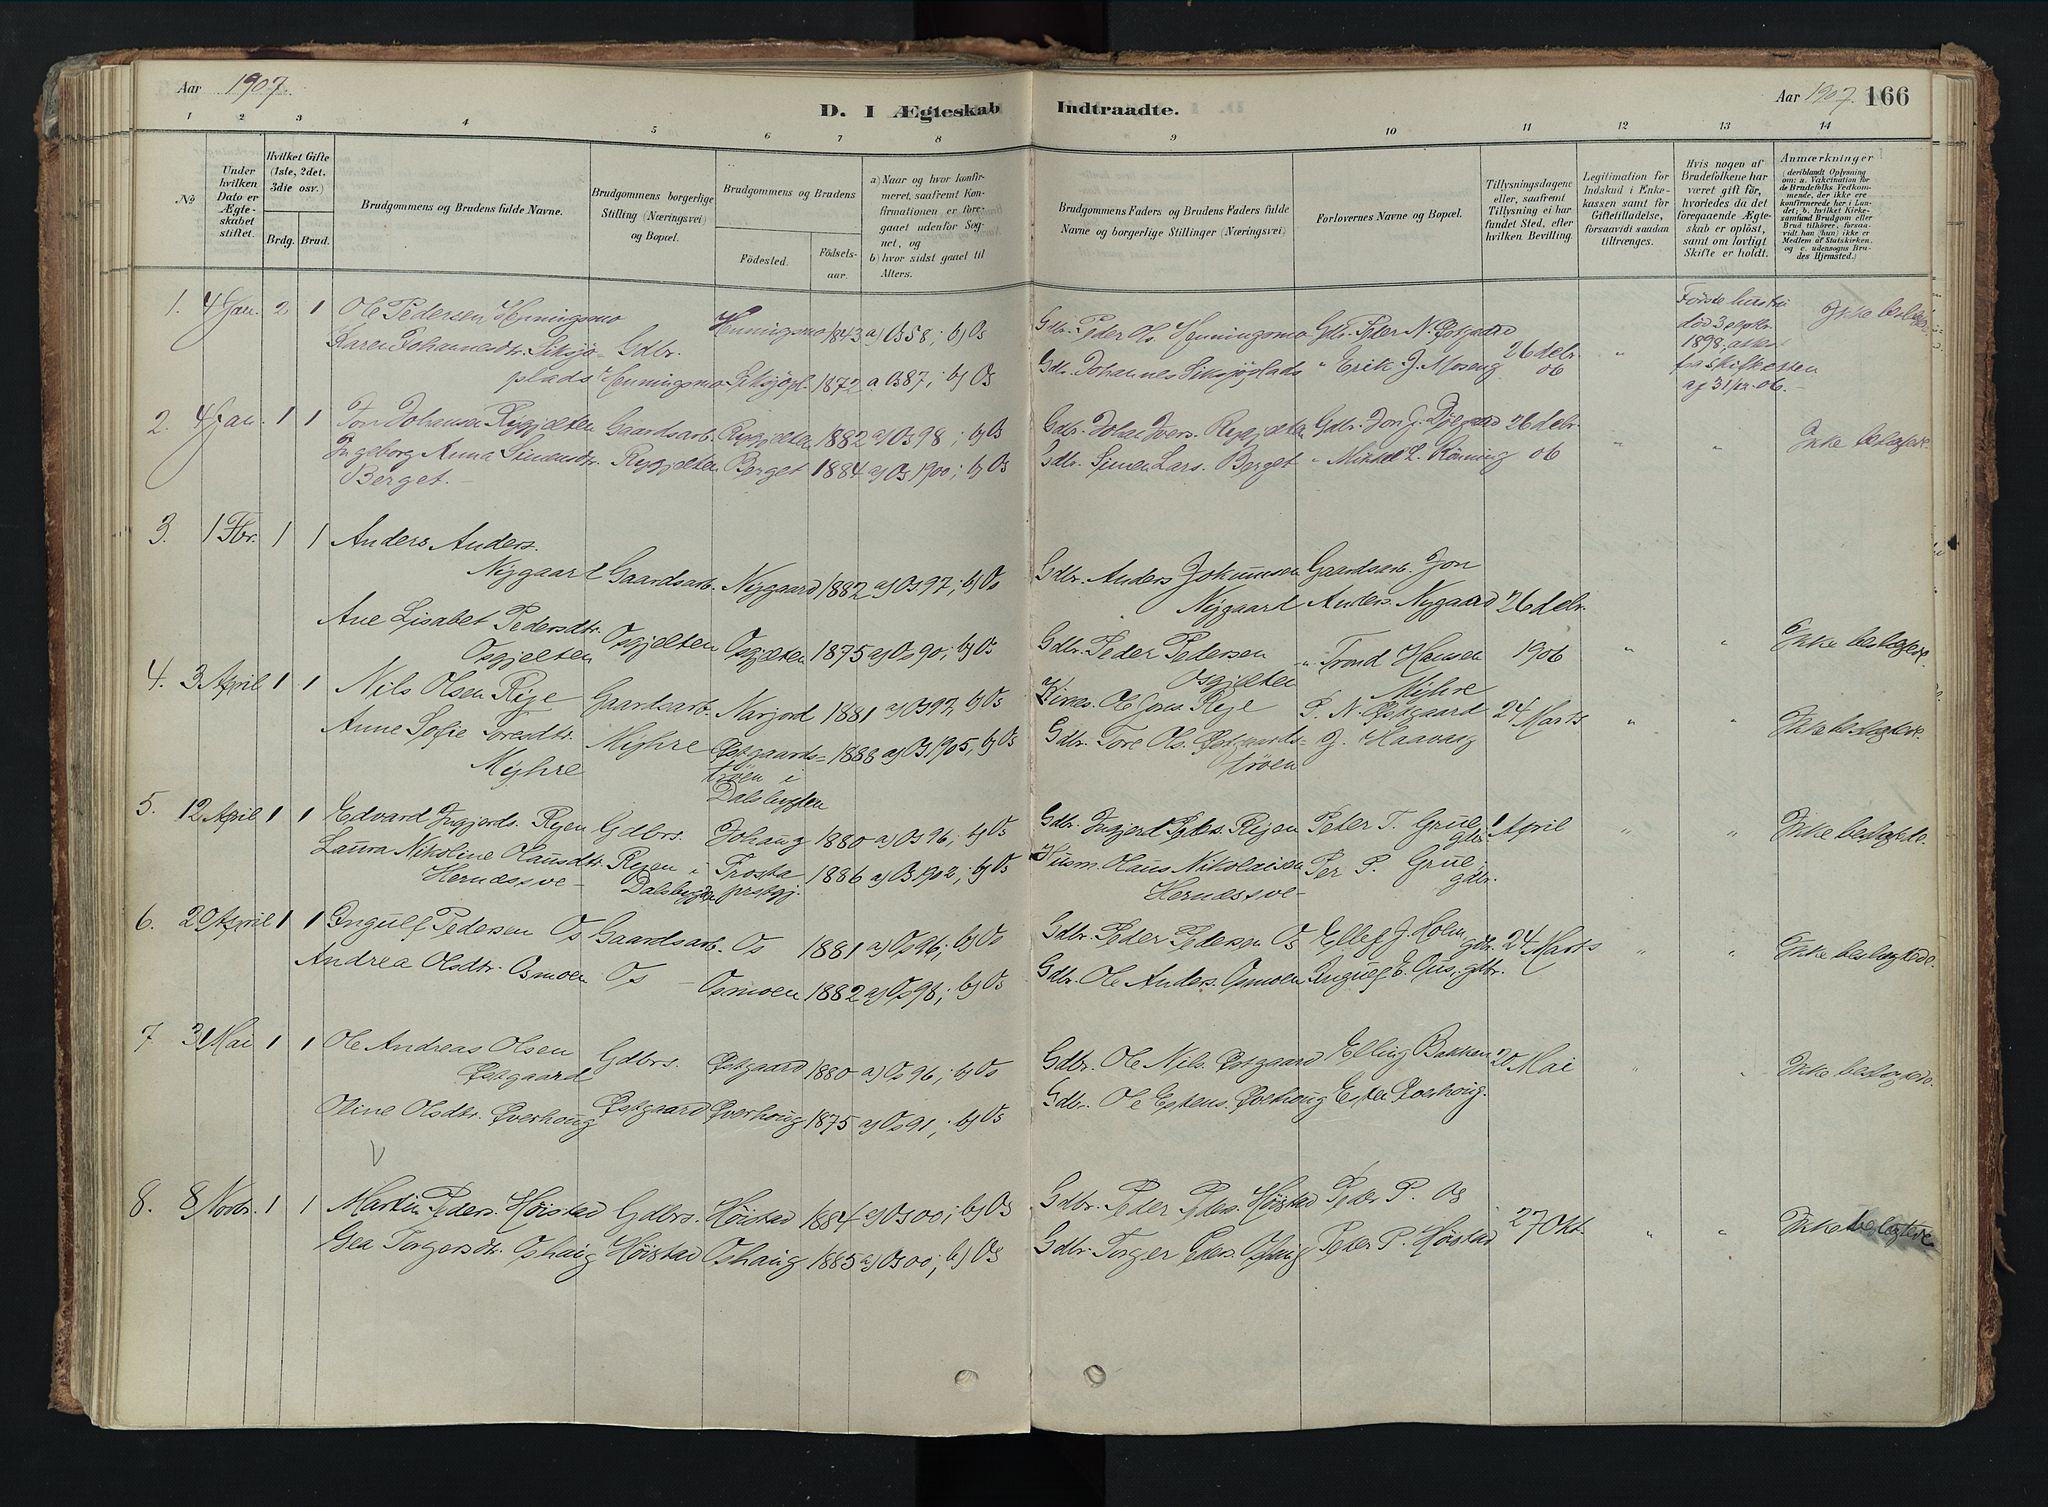 Aar 1907.
D. I Ægteskab Indtraadte.
Aar 1907. 166
1 2 3 4 5 6 7 8 9 10 11 12 13 14
No
Under hvilken Dato er Ægteskabet stiftet.
Hvilket Gifte (1ste, 2det, 3die osv.)
Brdg. Brud.
Brudgommens og Brudens fulde Navne.
Brudgommens borgerlige Stilling (Næringsvei) og Bopæl.
Brudgommens og Brudens
Födested.
Födselsaar.
a) Naar og hvor konfirmeret, saafremt Konfirmationen er foregaaet udenfor Sognet, og
b) hvor sidst gaaet til Alters.
Brudgommens Faders og Brudens Faders fulde Navne og borgerlige Stillinger (Næringsvei)
Forlovernes Navne og Bopæl.
Tillysningsdagene eller, saafremt Tillysning ei har fundet Sted, efter hvilken Bevilling.
Legitimation for Indskud i Enkekassen samt for Giftetilladelse, forsaavidt saadan tiltrænges.
Hvis nogen af Brudefolkene har været gift för, hvorledes da det foregaaende Ægteskab er oplöst, samt om lovligt Skifte er holdt.
Anmærkninger (deriblandt Oplysning om: a. Vakcination for de Brudefolks Vedkommende, der ikke ere konfirmerede her i Landet; b. hvilket Kirkesamfund Brudgom eller Brud tilhörer, forsaavidt han (hun) ikke er Medlem af Statskirken, og c. udensogns Brudes Hjemsted.)
1. 4 Jan. 2 1 Ole Pedersen Henningsmo Henningsmo 1843 a) Os 58; b) Os Gdbr. Peder Ols. Henningsmo Gdb. Peder N. Østgaard Første hustru
Karen Johannesdtr. Siksjø- Gdbr. død 3 1898
plads Henningsmo Siksjøpl. 1872 a Os 87; b) Os Gdbr. Johannes Siksjøplads " Erik J. Moseng 26 debr. 06 " fra skifteretten af 31/12 06. Ikke beslægtede
2. 4 Jan. 1 1 Jon Johansen Rygjelten Gaardsarb. Rygjelten 1882 a) Os 98; b) Os Gdbr. Johan Ivers. Rygjelten Gdbr. Jon J. Nygaard 26 debr.
Ingeborg Anna Simensdtr. Rygjelten Berget 1884 a) Os 1900; b) Os Gdbr. Simen Lars. Berget " Mikkel L. Rønning 06 " " Ikke beslægtede.
Berget.
3. 1 Fbr. 1 1 Anders Anders.
Nygaard Gaardsarb. Nygaard 1882 a) Os 97; b) Os Gdbr. Anders Johannsen Gaardsarb. Jon
Nygaard Anders. Nygaard 26 debr.
Ane Lisabet Pedersdtr. Osgjelten Osgjelten 1875 a) Os 90; b) Os Gdbr. Peder Pedersen " Trond Hansen 1906 " " Ikke beslægtede.
Osgjelten Osgjelten Myhre
4. 3 April 1 1 Nils Olsen Rye Gaardsarb. Narjord 1881 a) Os 97, b) Os Kirkes. Ole Jons. Rye P. N. Østgaard 24 Marts " " Ikke beslægtede.
Anne Sofie Toresdtr. Myhre Østgaards= 1888 a) Os 1905, b) Os Gdbr. Tore Ols. Østgaards= J. Haavaag
Myhre trøen i trøen
Dalsbygden
5. 12 April 1 1 Edvard Ingjerds. Ryen Gdbrs. Johaug 1880 a) Os 96; b) Os Gdbr. Ingjerd Peders. Ryen Peter T. Grue gdbr. 1 April " " Ikke beslægtede.
Laura Nikoline Hansdtr. Ryen i Trosta 1886 a) Os 1902; b) Os Husm. Hans Nikolaisen Per P. Grue, gdbr.
Hernæssve- Dalsbygden prstgj. Hernæssve-
6. 20 April 1 1 Ingulf Pedersen Os Gaardsarb. Os 1881 a) Os 96; b) Os Gdbr. Peder Pedersen Os Ellef J. Holm, gdbr. 24 Marts " " Ikke beslægtede.
Andrea Olsdtr. Osmoen Os - Osmoen 1882 a) Os 98; b) Os Gdbr. Ole Anders. Osmoen Ingulf E. Aus, gdbr.
7. 31 Mai 1 1 Ole Andreas Olsen Gdbrs. Østgaard 1880 a) Os 96; b) Os Gdbr. Ole Nils. Østgaard Elling Bakken 20 Mai " " Ikke beslægtede.
Østgaard
Oline Olsdtr. Øverhoug Østgaard Øverhoug 1875 a) Os 91; b) Os Gdbr. Ole Estens. Øverhoug Esten Øverhoug.
8. 8 Novbr. 1 1 Martin Peders. Høistad Gdbrs. Høistad 1884 a) Os 00; b) Os Gdbr. Peder Peders. Høistad Peder P. Os
Gea Torgersdtr. Oshaug Høistad Oshaug 1885 a) Os 00; b) Os Gdbr. Torger Peders. Oshaug Peter P. Høistad 27 Okt. " " Ikke beslægtede